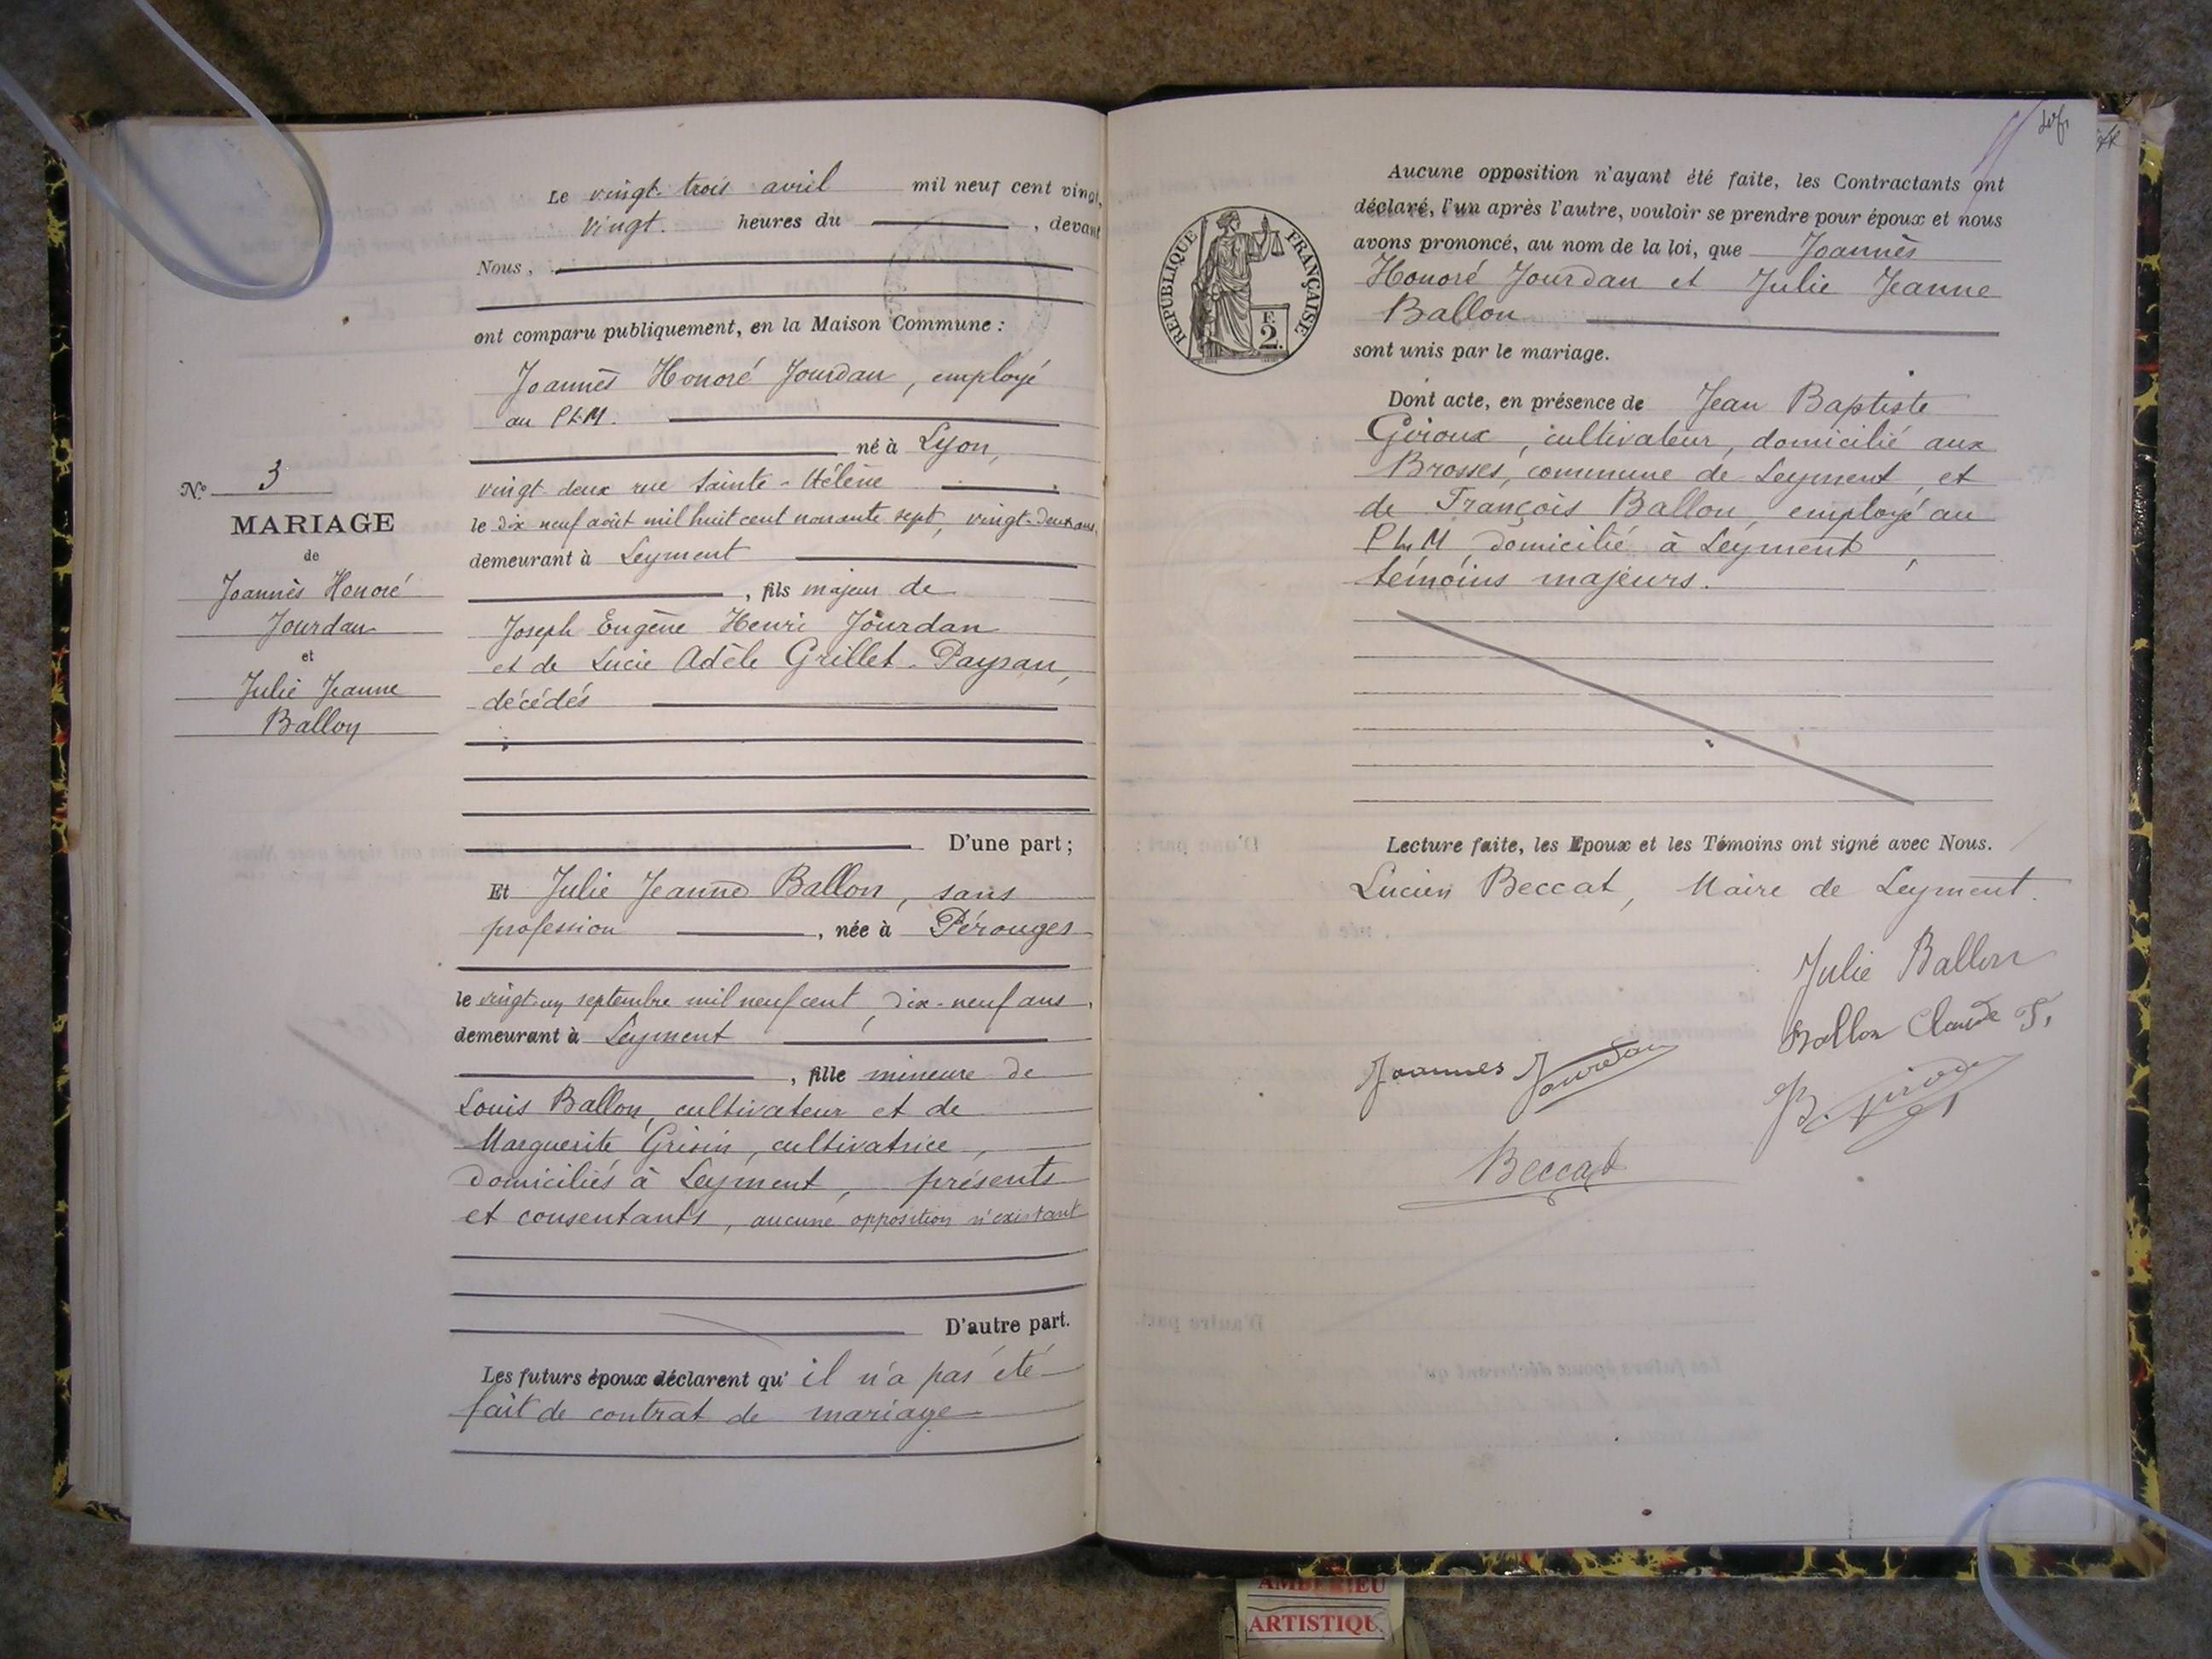 Le vingt-trois avril mil neuf cent vingt,
vingt. heures du , devant
Nous,
ont comparu publiquement, en la Maison Commune :
Joannès Honoré Jourdan, employé
au P.L.M.
né à Lyon,
vingt-deux rue Sainte-Hélène
le dix neuf août mil huit cent nonante sept, vingt-deux ans,
demeurant à Leyment
, fils majeur de
Joseph Eugène Henri Jourdan
et de Lucie Adèle Grillet-Paysan,
décédés
D'une part ;
Et Julie Jeanne Ballon, sans
profession , née à Pérouges
le vingt-un septembre mil neuf cent, dix-neuf ans,
demeurant à Leyment
, fille mineure de
Louis Ballon, cultivateur et de
Marguerite Grisin, cultivatrice,
domiciliés à Leyment, présents
et consentants, aucune opposition n'existant
D'autre part.
Les futurs époux déclarent qu' il n'a pas été
fait de contrat de mariage
N.° 3
MARIAGE
de
Joannès Honoré
Jourdan
et
Julie Jeanne
Ballon
REPUBLIQUE FRANÇAISE
F.
2.
Aucune opposition n'ayant été faite, les Contractants ont
déclaré, l'un après l'autre, vouloir se prendre pour époux et nous
avons prononcé, au nom de la loi, que Joannès
Honoré Jourdan et Julie Jeanne
Ballon
sont unis par le mariage.
Dont acte, en présence de Jean Baptiste
Giroux, cultivateur, domicilié aux
Brosses, commune de Leyment, et
de François Ballon, employé au
P.L.M, domicilié à Leyment,
témoins majeurs.
Lecture faite, les Epoux et les Témoins ont signé avec Nous.
Lucien Beccat, Maire de Leyment.
Julie Ballon
Ballon Claude F.
Joannes Jourdan
Beccat
AMBERIEU
ARTISTIQU